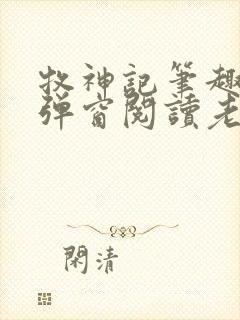 牧神記筆趣
彈窗閱讀老
閑清